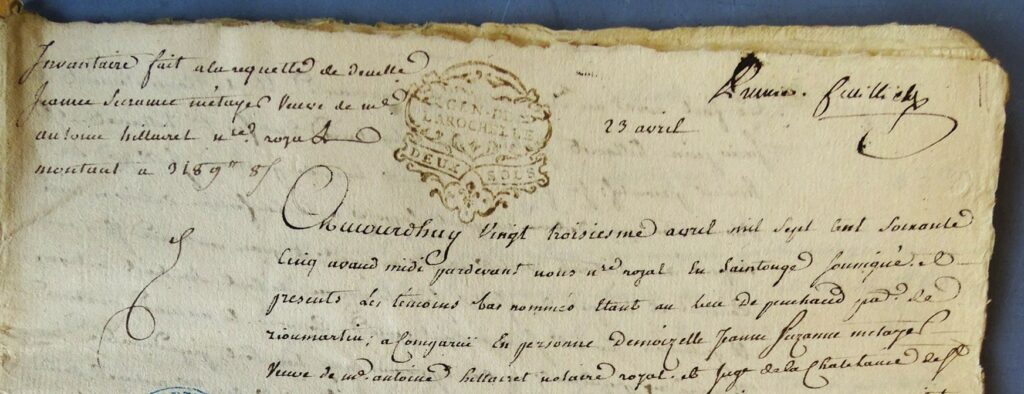 Inventaire fait a la requette de d.elle
Jeanne Suzanne métayer Veuve de m.e
antoine hillairet n.re royal
montant a 3189# 8s
GEN. DE
LAROCHELLE
DEUX SOLS
23 avril
feuillet
Aujourdhuy Vingt troisiesme avril mil sept cent soixante
Cinq avand midi pardevant nous n.re royal En Saintonge soussigné et
presents Les témoins bas nommés Etant au lieu de peuchaud par. de
rioumartin, a Comparu En personne Demoizelle Jeanne Suzanne métayer
Veuve de m.e antoine hillairet notaire royal et juge de la Chatelanie de St